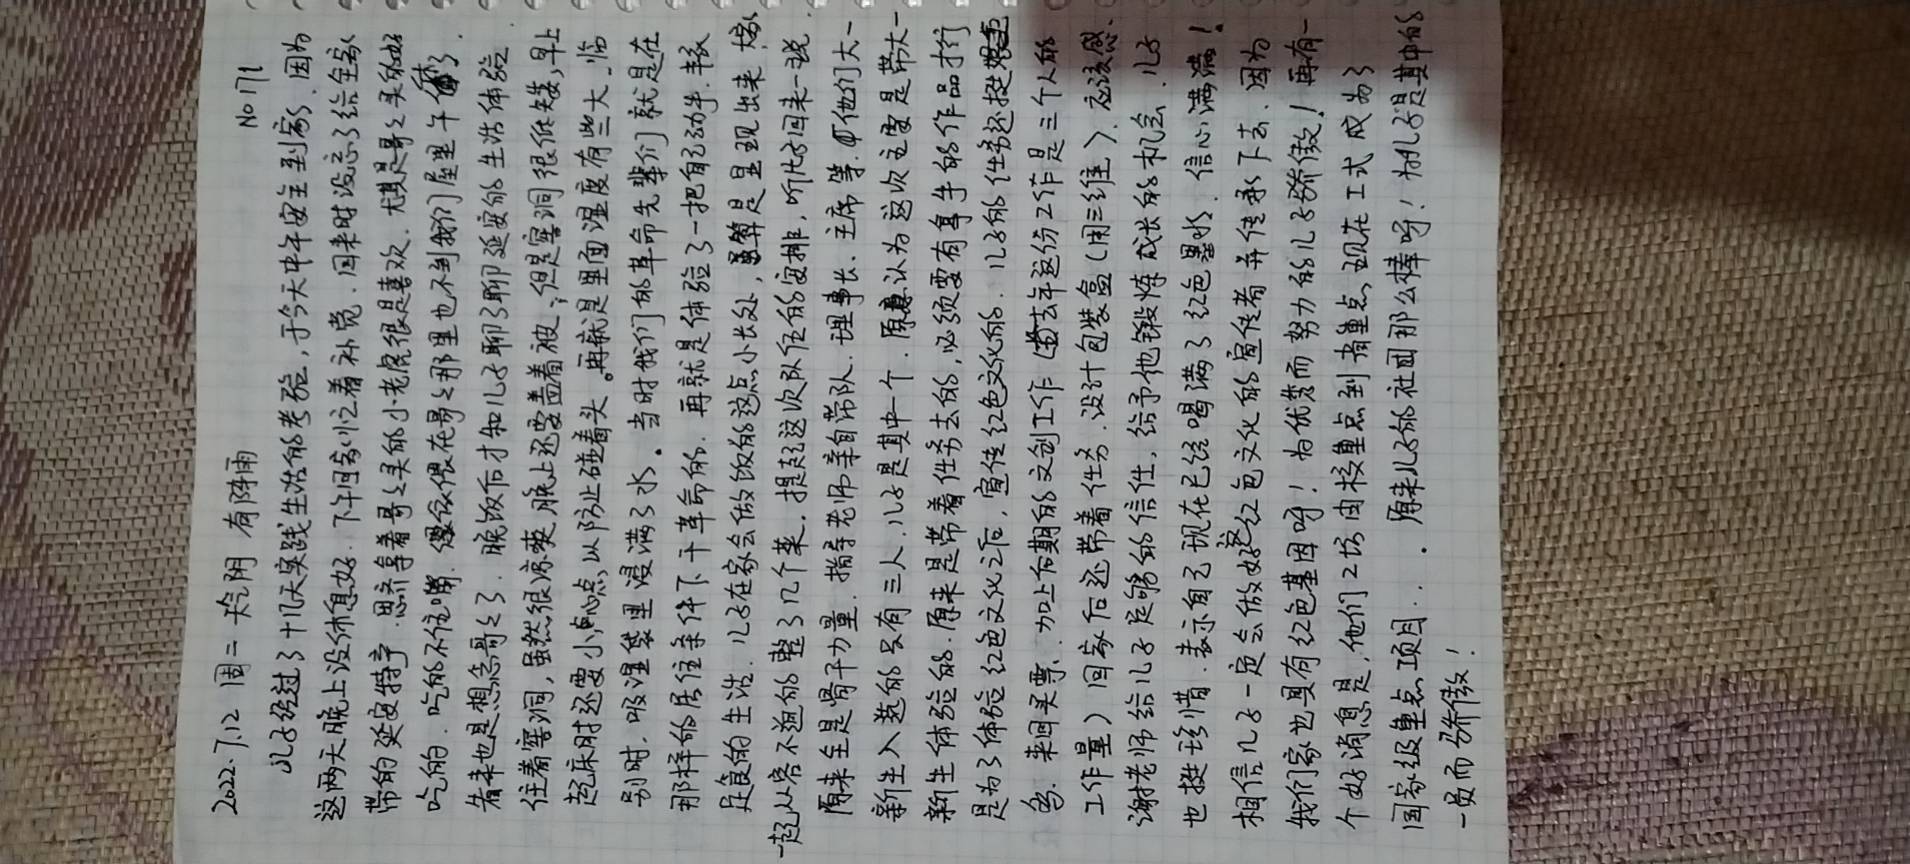 2022.7.12 周二 天气阴 有阵雨 No 171
儿子经过了十几天实践生活的考验,于今天中午安全到家,因为
这两天晚上没休息好.下午回家忙着补觉.回来时没忘了给全家
带的延安特产.思齐拿着哥哥买的小老虎很是喜欢.尤其是哥哥买的好
吃的.吃的不住嘴.偎在哥哥那里也不到我们屋里午休了.
看来也是想念哥哥了.晚饭后才和儿子聊了聊延安的生活体验
住着窑洞,虽然很凉爽晚上还要盖着被;但是窑洞很低矮,早上
起床时还要小心点,以防止碰着头。再就是里面湿度有些大.临
别时.吸湿袋里浸满了水。当时我们的革命先辈们就是在
那样的居住条件下干革命的.再就是体验了一把自己动手.丰衣
足食的生活.儿子在家会做饭的这点小长处,算是显现出来.
一起从容不迫的整了几个菜.提起这次队伍的安排,听儿子回来一说.
原来全是骨干力量.指导老师亲自带队.理事长、主席等.他们大一
新生入选的只有三人.儿子是其中一个.原以为这次主要是带大一
新生体验的.原来是带着任务去的,必须要有拿手的作品才行
是为了体验红色文化之后,宣传红色文化的.儿子的任务还挺
多.来回买票、加上后期的文创工作(去年这份工作是三个人的
工作量)回家后还带着任务.设计包装盒(用三维).应该感
谢老师给儿子足够的信任,给予他锻炼成长的机会.儿子
也挺珍惜.表示自己现在已经喝满了红色墨水.信心满满!
相信儿子一定会做好红色文化的宣传者并传承下去.因为
我们家也具有红色基因呀!为优秀而努力的儿子骄傲!再有一
个好消息是,他们2坊由校重点到省重点,现在正式成为了
国家级重点项目....原来儿子的社团那么棒呀!为儿子是其中的
一员而骄傲!